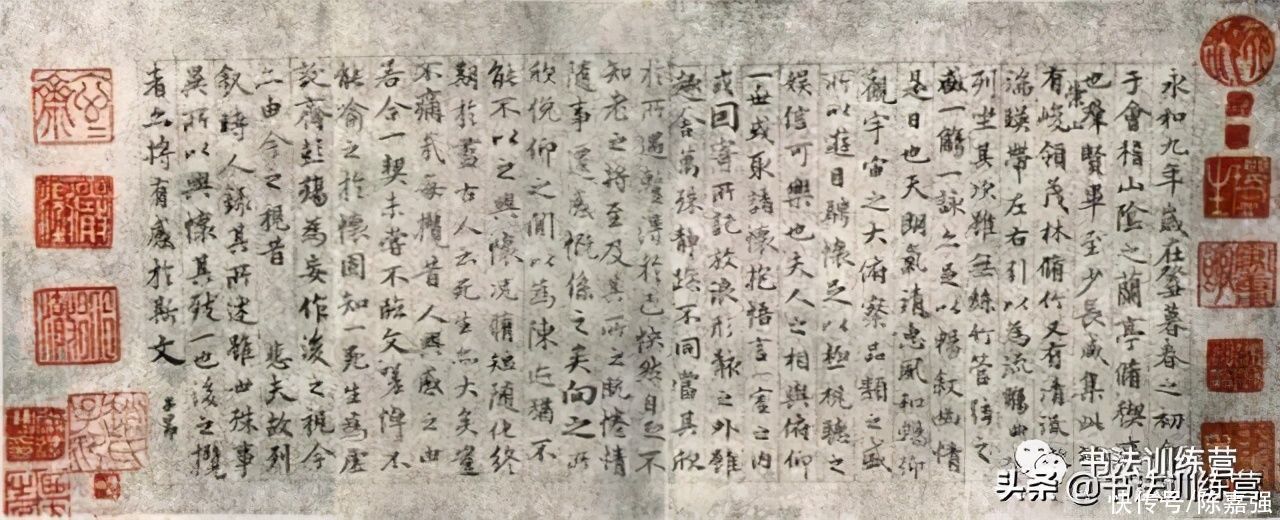 永和九年歲在癸丑暮春之初會
于會稽山陰之蘭亭脩禊事
也羣賢畢至少長咸集此地
有崇山峻領茂林脩竹又有清流激
湍暎帶左右引以為流觴曲水
列坐其次雖無絲竹管絃之
盛一觴一詠亦足以暢敘幽情
是日也天朗氣清惠風和暢仰
觀宇宙之大俯察品類之盛
所以遊目騁懷足以極視聽之
娛信可樂也夫人之相與俯仰
一世或取諸懷抱悟言一室之內
或因寄所託放浪形骸之外雖
趣舍萬殊靜躁不同當其欣
於所遇暫得於己怏然自足不
知老之將至及其所之既惓情
隨事遷感慨係之矣向之所
欣俛仰之閒以為陳迹猶不
能不以之興懷況脩短隨化終
期於盡古人云死生亦大矣豈
不痛哉每攬昔人興感之由
若合一契未嘗不臨文嗟悼不
能喻之於懷固知一死生為虛
誕齊彭殤為妄作後之視今
亦由今之視昔 悲夫故列
敘時人錄其所述雖世殊事
異所以興懷其致一也後之攬
者亦將有感於斯文
子昂
书法训练营
头条@书法训练营
快传号/陈嘉强